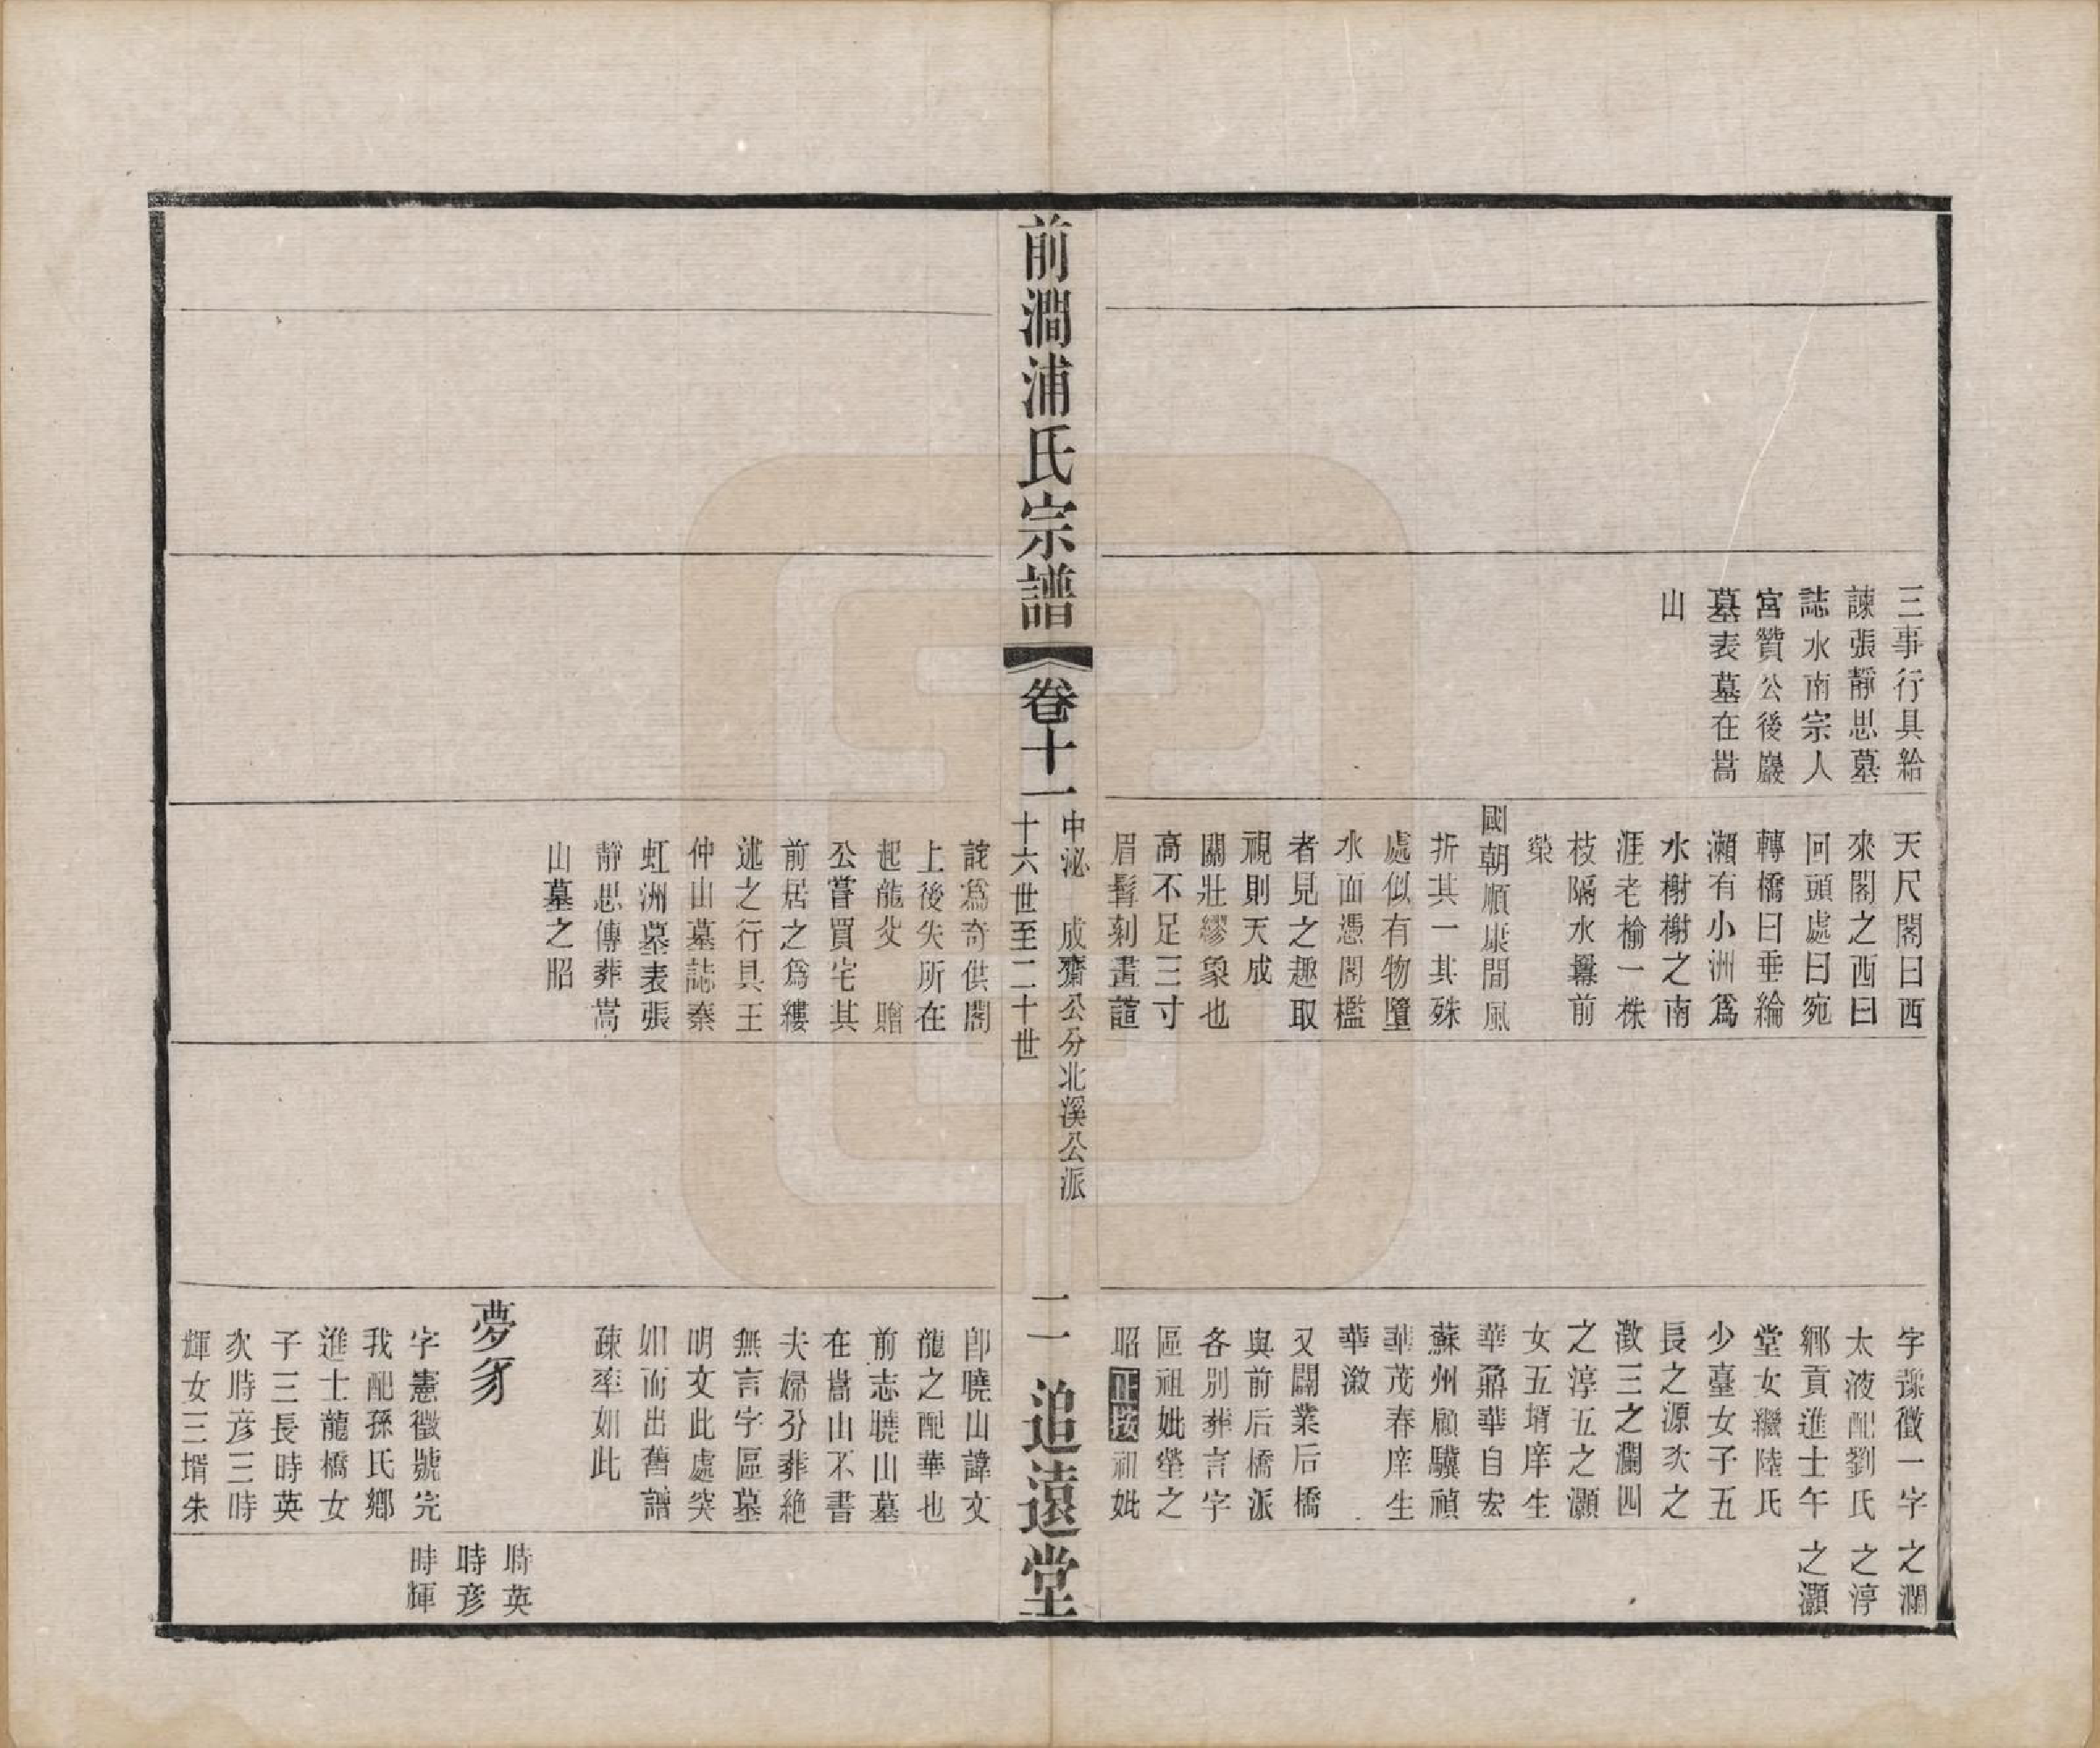 三事行具給
諫張靜思墓
誌水南宗人
宮贊公後巖
墓表墓在嵩
山
天尺閣曰西
來閣之西曰
回頭處曰宛
轉橋曰垂綸
瀨有小洲爲
水榭榭之南
涯老榆一株
枝隔水羃前
榮
國朝順康間風
折其一其殊
處似有物墮
水面憑閣檻
者見之趣取
視則天成
關壯繆象也
高不足三寸
眉髯刻畫諠
字豫徵一字
太液配劉氏
鄉貢進士午
堂女繼陸氏
少臺女子五
長之源次之
激三之瀾四
之淳五之灝
女五壻庠生
華鼐華自宏
蘇州顧驥禎
華茂春庠生
華漵
又闢業后橋
與前后橋派
各別葬言字
區祖妣塋之
昭正按祖妣
之瀾
之淳
之灝
前澗浦氏宗譜
卷十一
中泌 成齋公分北溪公派
十六世至二十世
二
追遠堂
詫爲奇供閣
上後失所在
起龍父 贈
公嘗買宅其
前居之爲縷
述之行具王
仲山墓誌秦
虹洲墓表張
靜思傳葬嵩
山墓之昭
卽曉山諱文
龍之配華也
前志曉山墓
在嵩山不書
夫婦分葬絶
無言字區墓
明文此處突
如而出舊譜
疎率如此
夢豸
字憲徵號完
我配孫氏鄉
進士龍橋女
子三長時英
次時彥三時
輝女三壻朱
時英
時彥
時輝